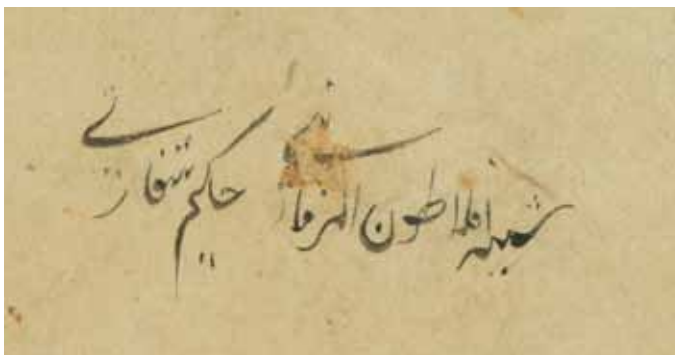 شبیه افلاطون الزمانی حکیم شفائی